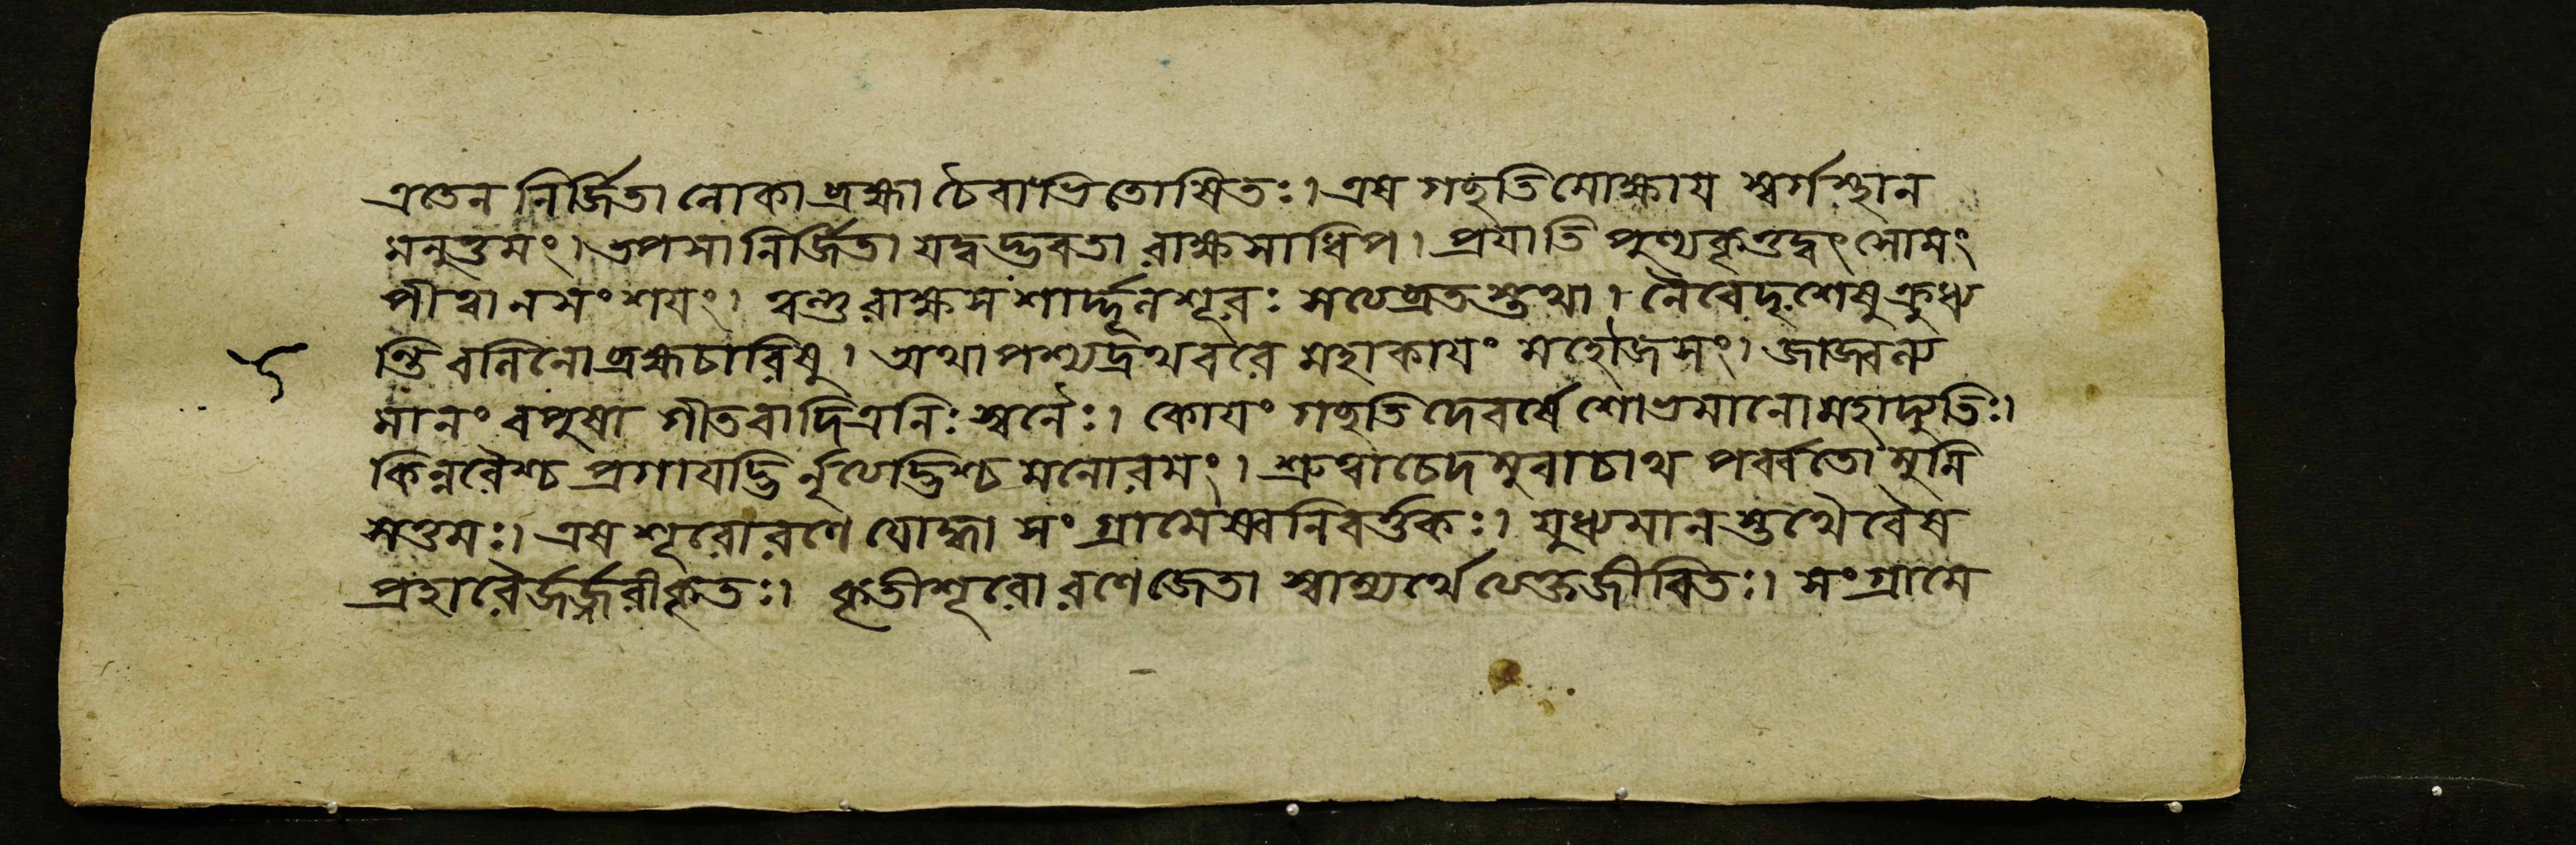 এতেন নির্জিতা লোকা ব্রহ্মা চৈবাভিতোষিতঃ। এষ গচ্ছতি মোক্ষায স্বর্গস্থান
মনুত্তমং। তপসা নির্জিতা যদ্বদ্ভবতা রাক্ষসাধিপ। প্রযাতি পুণ্যকৃত্তদ্বৎ সোমং
পীত্বা ন সংশযং। ত্বন্তু রাক্ষসশার্দ্দূল শূরঃ সত্যব্রতস্তথা। নৈবেদৃশেষু ক্রুধ্য
ন্তি বলিনো ব্রহ্মচারিষু। অথাপশ্যদ্রথবরে মহাকাযং মহৌজসং। জাজ্বল্য
মানং বপুষা গীতবাদিত্রনিঃস্বনৈঃ। কোযং গচ্ছতি দেবর্ষে শোভমানো মহাদ্যুতিঃ।
কিন্নরৈশ্চ প্রগাযদ্ভির্নৃত্যদ্ভিশ্চ মনোরমং। শ্রুত্বা চেদমুবাচাথ পর্ব্বতো মুনি
সত্তমঃ। এষ শূরো রণে যোদ্ধা সংগ্রামেষ্বনিবর্ত্তকঃ। যুধ্যমানস্তথৈবৈষ
প্রহারৈর্জর্জ্জরীকৃতঃ। কৃতী শূরো রণে জেতা স্বাম্যর্থে ত্যক্তজীবিতঃ। সংগ্রামে